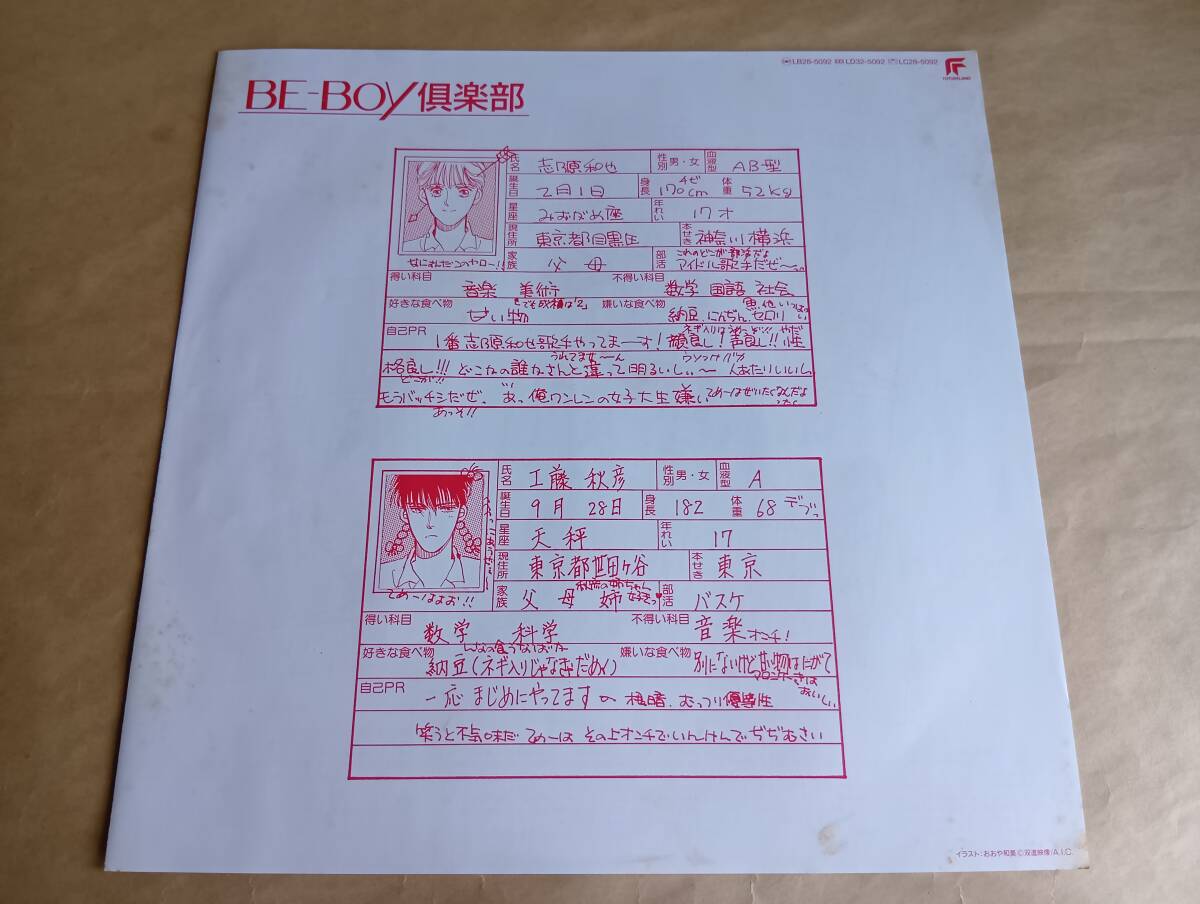 BE-BOY俱楽部
LB28-5092 LD32-5092 LC28-5092
FUTURELAND
氏名 志乃原和也 性別 男・女 血液型 AB型
誕生日 2月1日 身長 170cm 体重 52kg
星座 みずがめ座 年れい 17才
現住所 東京都目黒区 本せき 神奈川横浜
家族 父 母 部活 アイドル歌手だぜ〜
これのどこが部活だよ
なにすんだこのヤロー!!
得い科目 音楽 美術 不得い科目 数学 国語 社会
「でも成積は'2」
好きな食べ物 甘い物 嫌いな食べ物 納豆、にんじん、セロリ
自己PR 1番志乃原和也歌手やってまーす! 顔良し! 声良し!! 性
格良し!!! どこかの誰かさんと違って明るいしぃ〜 人あたりいいし
どこが!!
もうバッチシだぜ。あっ俺ワンレンの女子大生嫌い
あっそ!!
氏名 工藤 秋彦 性別 男・女 血液型 A
誕生日 9月 28日 身長 182 体重 68 デブっ
星座 天秤 年れい 17
現住所 東京都世田ヶ谷 本せき 東京
家族 父 母 姉 部活 バスケ
てめーはよお!!
得い科目 数学 科学 不得い科目 音楽 オンチ!
好きな食べ物 納豆(ネギ入りじゃなきゃだめ) 嫌いな食べ物 別にないけど甘い物はにがて
自己PR 一応まじめにやってます 根暗、むっつり優等性
笑うと不気味だ てめーは その上オンチでいんけんでぢぢむさい
イラスト:おおや和美©双進映像/A.I.C.